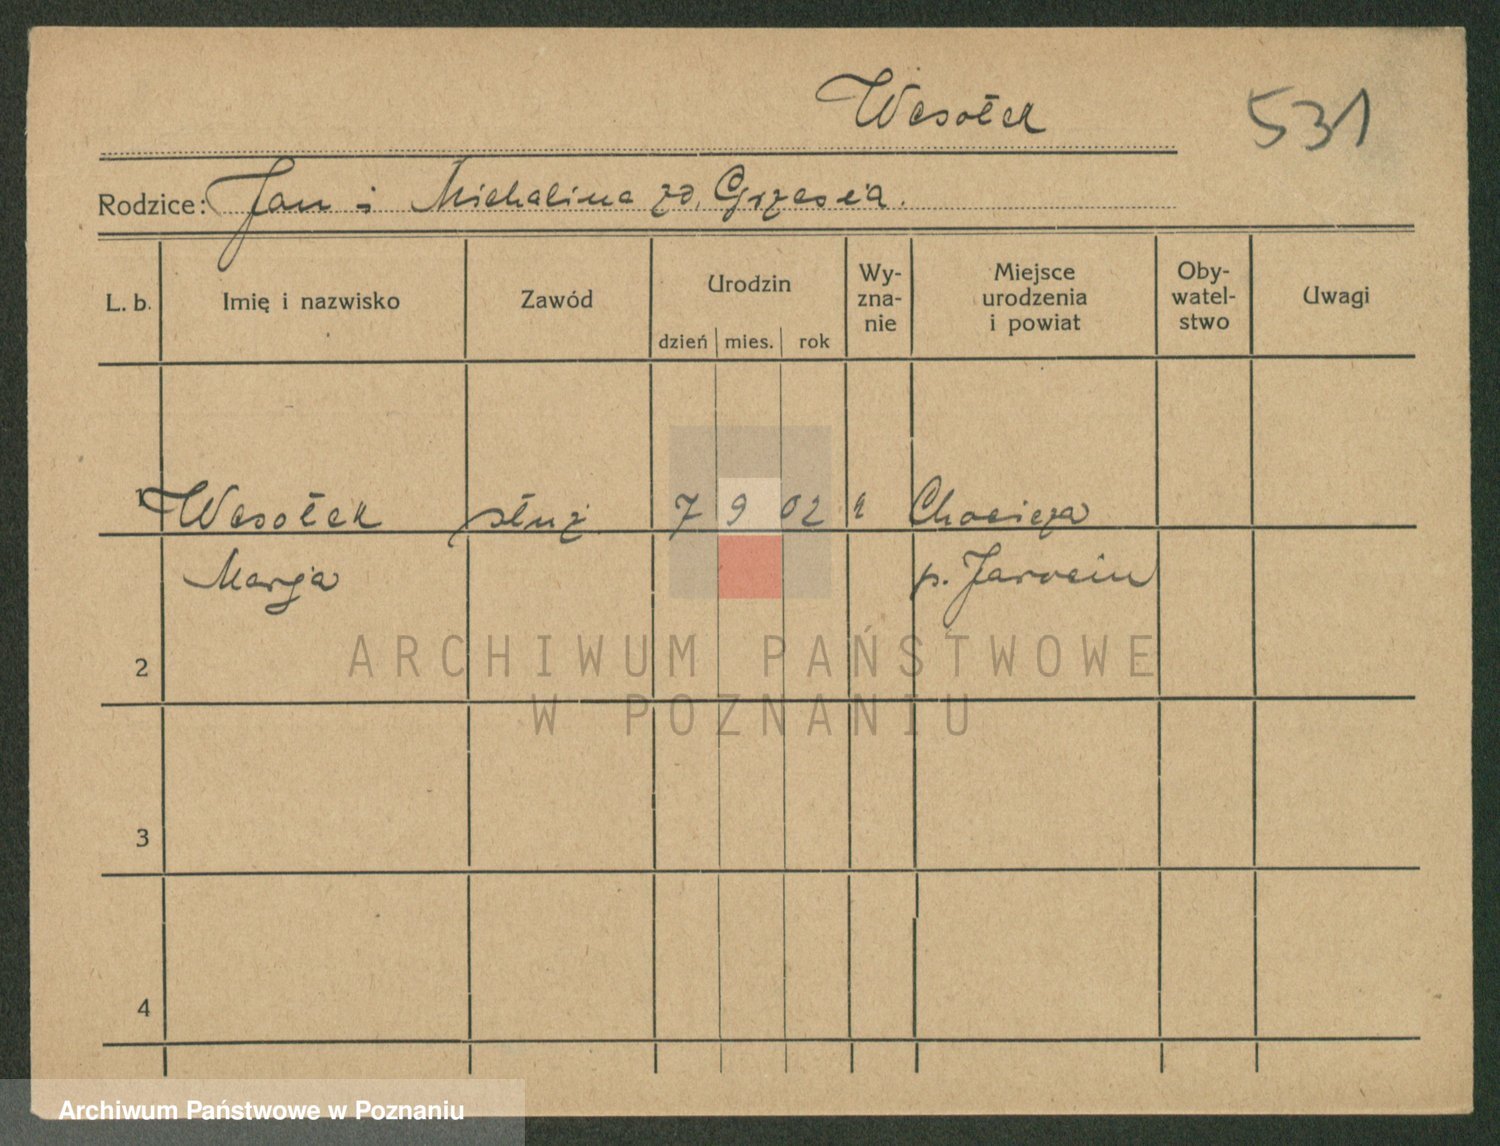 Wesołek
531
Rodzice: Jan i Michalina zd. Grzesia.
L. b. Imię i nazwisko Zawód Urodzin Wy-zna-nie Miejsce urodzenia i powiat Oby-watel-stwo Uwagi
dzień mies. rok
1 Wesołek służ. 7 9 02 Chocicza
Marja p. Jarocin
2
ARCHIWUM PAŃSTWOWE
W POZNANIU
3
4
Archiwum Państwowe w Poznaniu